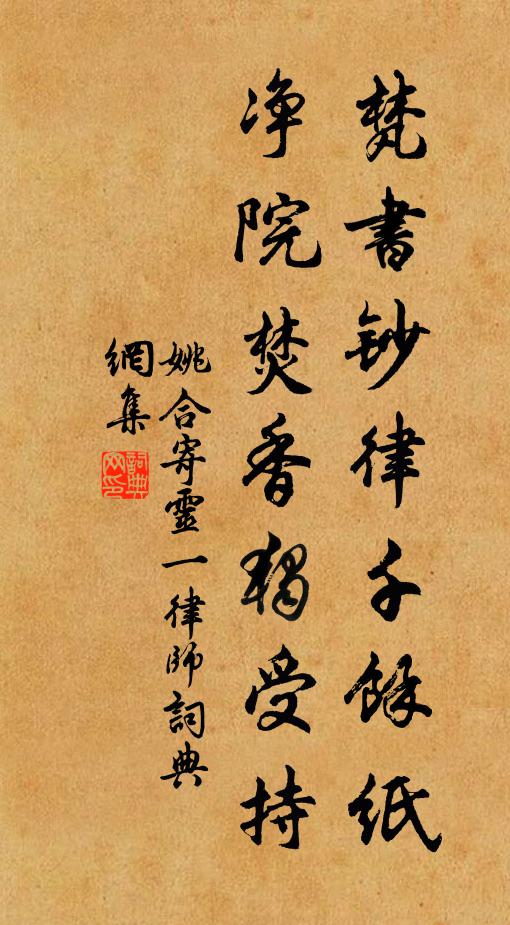 梵書鈔律千餘紙
净院焚香獨受持
姚合寄靈一律師詞典
網集
詞典網印